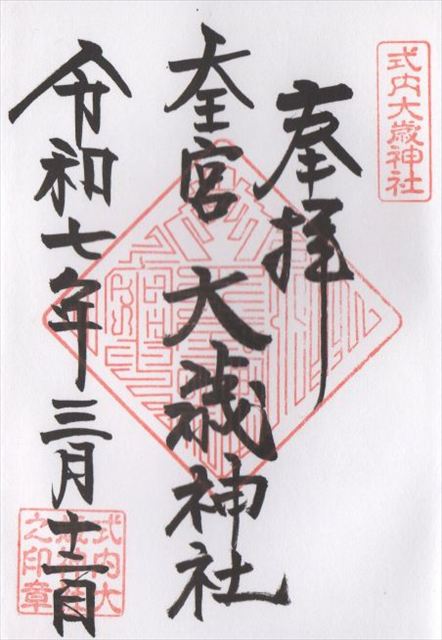 式内大歳神社
奉拝
天王宮 大歳神社
令和七年三月十二日
式内大
歳神社
之印章